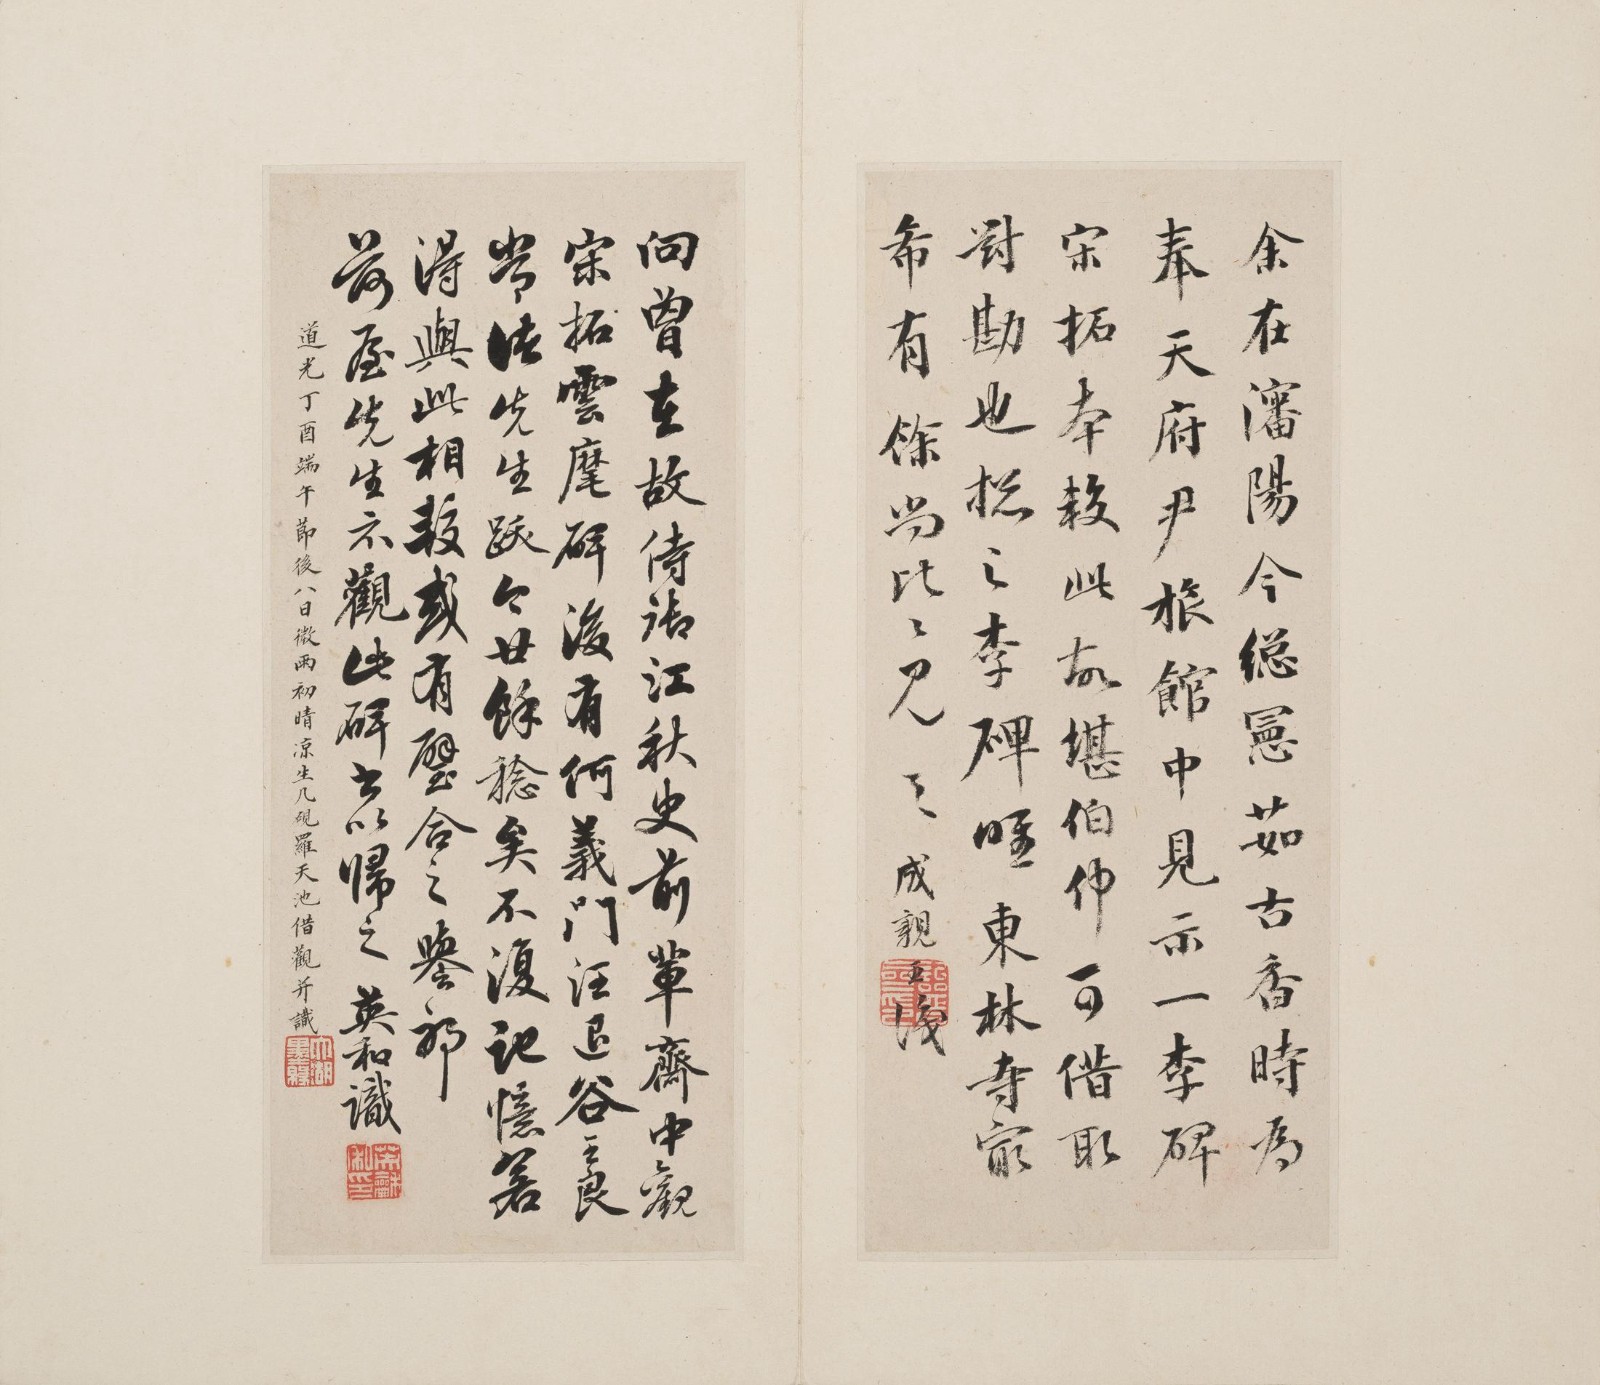 余在瀋陽今總憲茹古香時為
奉天府尹旅館中見示一李碑
宋拓本較此故堪伯仲可借取
對勘也總之李碑唯東林寺寂
希有餘尚比比見之 成親王識
向曾在故侍御江秋史前輩齋中觀
宋拓雲麾碑後有何義門汪退谷王良
常諸先生跋今廿餘稔矣不復記憶若
得與此相較或有璧合之鑒耶
荷屋先生示觀此碑書以歸之 英和識
道光丁酉端午節後八日微雨初晴涼生几硯羅天池借觀并識